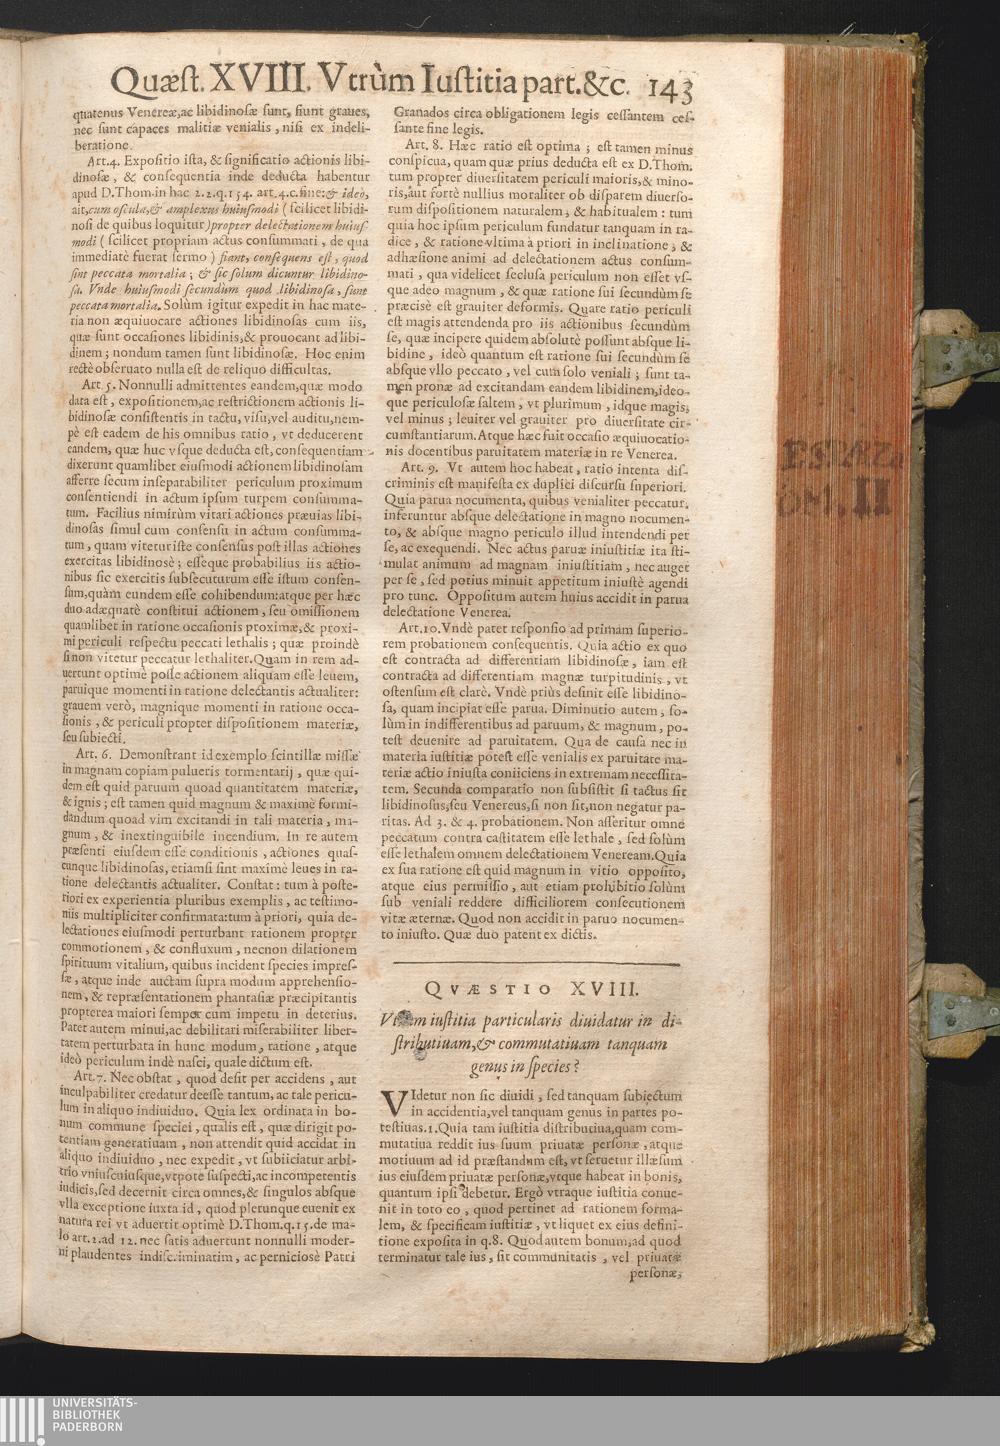 Quæst. XVIII. Vtrùm Iustitia part. &c. 143
quatenus Venereæ, ac libidinosæ sunt, fiunt graues,
nec sunt capaces malitiæ venialis, nisi ex indeli-
beratione.
Art. 4. Expositio ista, & significatio actionis libi-
dinosæ, & consequentia inde deducta habentur
apud D. Thom. in hac 2. 2. q. 154. art. 4. c. fine: & ideò,
ait, cum oscula, & amplexus huiusmodi (scilicet libidi-
nosi de quibus loquitur) propter delectationem huius-
modi (scilicet propriam actus consummati, de qua
immediatè fuerat sermo) fiant, consequens est, quod
sint peccata mortalia; & sic solum dicuntur libidino-
sa. Vnde huiusmodi secundùm quod libidinosa, sunt
peccata mortalia. Solùm igitur expedit in hac mate-
ria non æquiuocare actiones libidinosas cum iis,
quæ sunt occasiones libidinis, & prouocant ad libi-
dinem; nondum tamen sunt libidinosæ. Hoc enim
rectè obseruato nulla est de reliquo difficultas.
Art. 5. Nonnulli admittentes eandem, quæ modo
data est, expositionem, ac restrictionem actionis li-
bidinosæ consistentis in tactu, visu, vel auditu, nem-
pè est eadem de his omnibus ratio, vt deducerent
eandem, quæ huc vsque deducta est, consequentiam
dixerunt quamlibet eiusmodi actionem libidinosam
afferre secum inseparabiliter periculum proximum
consentiendi in actum ipsum turpem consumma-
tum. Facilius nimirùm vitari actiones præuias libi-
dinosas simul cum consensu in actum consumma-
tum, quam vitetur iste consensus post illas actiones
exercitas libidinosè; esseque probabilius iis actio-
nibus sic exercitis subsecuturum esse istum consen-
sum, quàm eundem esse cohibendum: atque per hæc
duo adæquatè constitui actionem, seu omissionem
quamlibet in ratione occasionis proximæ, & proxi-
mi periculi respectu peccati lethalis; quæ proindè
si non vitetur peccatur lethaliter. Quam in rem ad-
uertunt optimè posse actionem aliquam esse leuem,
paruique momenti in ratione delectantis actualiter:
grauem verò, magnique momenti in ratione occa-
sionis, & periculi propter dispositionem materiæ,
seu subiecti.
Art. 6. Demonstrant id exemplo scintillæ missæ
in magnam copiam pulueris tormentarij, quæ qui-
dem est quid paruum quoad quantitatem materiæ,
& ignis; est tamen quid magnum & maximè formi-
dandum quoad vim excitandi in tali materia, ma-
gnum, & inextinguibile incendium. In re autem
præsenti eiusdem esse conditionis, actiones quas-
cunque libidinosas, etiamsi sint maximè leues in ra-
tione delectantis actualiter. Constat: tum à poste-
riori ex experientia pluribus exemplis, ac testimo-
niis multipliciter confirmata: tum à priori, quia de-
lectationes eiusmodi perturbant rationem propter
commotionem, & confluxum, necnon dilationem
spirituum vitalium, quibus incident species impres-
sæ, atque inde auctam supra modum apprehensio-
nem, & repræsentationem phantasiæ præcipitantis
propterea maiori semper cum impetu in deterius.
Patet autem minui, ac debilitari miserabiliter liber-
tatem perturbata in hunc modum, ratione, atque
ideò periculum indè nasci, quale dictum est.
Art. 7. Nec obstat, quod desit per accidens, aut
inculpabiliter credatur deesse tantum, ac tale pericu-
lum in aliquo indiuiduo. Quia lex ordinata in bo-
num commune speciei, qualis est, quæ dirigit po-
tentiam generatiuam, non attendit quid accidat in
aliquo indiuiduo, nec expedit, vt subiiciatur arbi-
trio vniuscuiusque, vtpote suspecti, ac incompetentis
iudicis, sed decernit circa omnes, & singulos absque
vlla exceptione iuxta id, quod plerunque euenit ex
natura rei vt aduertit optimè D. Thom. q. 15. de ma-
lo art. 2. ad 12. nec satis aduertunt nonnulli moder-
ni plaudentes indiscriminatim, ac perniciosè Patri
Granados circa obligationem legis cessantem ces-
sante fine legis.
Art. 8. Hæc ratio est optima; est tamen minus
conspicua, quam quæ prius deducta est ex D. Thom.
tum propter diuersitatem periculi maioris, & mino-
ris, aut fortè nullius moraliter ob disparem diuerso-
rum dispositionem naturalem, & habitualem: tum
quia hoc ipsum periculum fundatur tanquam in ra-
dice, & ratione vltima à priori in inclinatione, &
adhæsione animi ad delectationem actus consum-
mati, qua videlicet seclusa periculum non esset vs-
que adeo magnum, & quæ ratione sui secundùm se
præcisè est grauiter deformis. Quare ratio periculi
est magis attendenda pro iis actionibus secundùm
se, quæ incipere quidem absolutè possunt absque li-
bidine, ideò quantum est ratione sui secundùm se
absque vllo peccato, vel cum solo veniali; sunt ta-
men pronæ ad excitandam eandem libidinem, ideo-
que periculosæ saltem, vt plurimum, idque magis,
vel minus; leuiter vel grauiter pro diuersitate cir-
cumstantiarum. Atque hæc fuit occasio æquiuocatio-
nis docentibus paruitatem materiæ in re Venerea.
Art. 9. Vt autem hoc habeat, ratio intenta dis-
criminis est manifesta ex duplici discursu superiori.
Quia parua nocumenta, quibus venialiter peccatur,
inferuntur absque delectatione in magno nocumen-
to, & absque magno periculo illud intendendi per
se, ac exequendi. Nec actus paruæ iniustitiæ ita sti-
mulat animum ad magnam iniustitiam, nec auget
per se, sed potius minuit appetitum iniustè agendi
pro tunc. Oppositum autem huius accidit in parua
delectatione Venerea.
Art. 10. Vndè patet responsio ad primam superio-
rem probationem consequentis. Quia actio ex quo
est contracta ad differentiam libidinosæ, iam est
contracta ad differentiam magnæ turpitudinis, vt
ostensum est clarè. Vndè priùs desinit esse libidino-
sa, quam incipiat esse parua. Diminutio autem, so-
lùm in indifferentibus ad paruum, & magnum, po-
test deuenire ad paruitatem. Qua de causa nec in
materia iustitiæ potest esse venialis ex paruitate ma-
teriæ actio iniusta coniiciens in extremam necessita-
tem. Secunda comparatio non subsistit si tactus sit
libidinosus, seu Venereus, si non sit, non negatur pa-
ritas. Ad 3. & 4. probationem. Non asseritur omne
peccatum contra castitatem esse lethale, sed solùm
esse lethalem omnem delectationem Veneream. Quia
ex sua ratione est quid magnum in vitio opposito,
atque eius permissio, aut etiam prohibitio solùm
sub veniali reddere difficiliorem consecutionem
vitæ æternæ. Quod non accidit in paruo nocumen-
to iniusto. Quæ duo patent ex dictis.
QVÆSTIO XVIII.
Vtrum iustitia particularis diuidatur in di-
stributiuam, & commutatiuam tanquam
genus in species?
VIdetur non sic diuidi, sed tanquam subiectum
in accidentia, vel tanquam genus in partes po-
testiuas. 1. Quia tam iustitia distributiua, quam com-
mutatiua reddit ius suum priuatæ personæ, atque
motiuum ad id præstandum est, vt seruetur illæsum
ius eiusdem priuatæ personæ, vtque habeat in bonis,
quantum ipsi debetur. Ergò vtraque iustitia conue-
nit in toto eo, quod pertinet ad rationem forma-
lem, & specificam iustitiæ, vt liquet ex eius defini-
tione exposita in q. 8. Quod autem bonum, ad quod
terminatur tale ius, sit communitatis, vel priuatæ
personæ,
II
UNIVERSITÄTS-
BIBLIOTHEK
PADERBORN